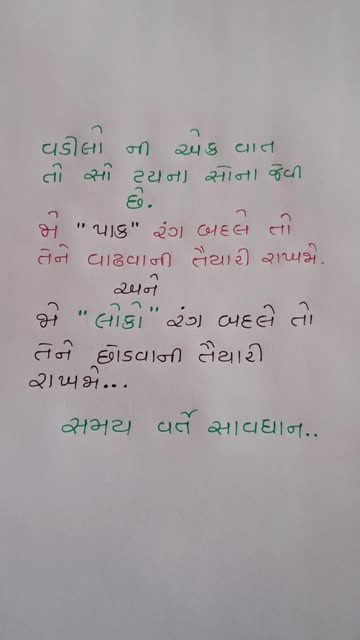 વડીલો ની એક વાત
તો સો ટચના સોના જેવી
છે.
જો "પાક" રંગ બદલે તો
તેને વાઢવાની તૈયારી રાખજો.
અને
જો "લોકો" રંગ બદલે તો
તેને છોડવાની તૈયારી
રાખજો...
સમય વર્તે સાવધાન..